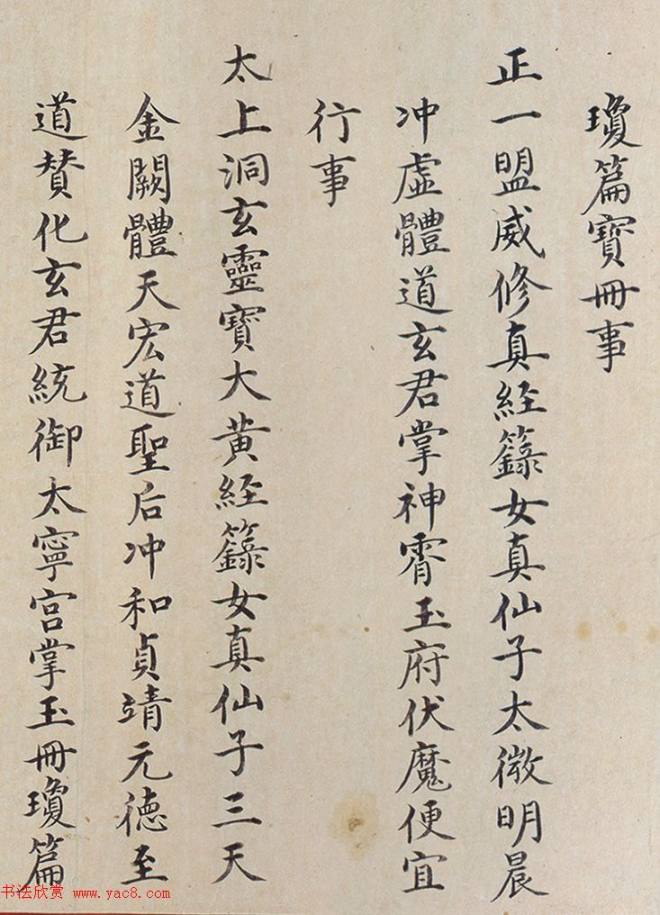 瓊篇寶冊事
正一盟威修真経籙女真仙子太微明晨
冲虛體道玄君掌神霄玉府伏魔便宜
行事
太上洞玄靈寶大黄経籙女真仙子三天
金闕體天宏道聖后冲和貞靖元德至
道賛化玄君統御太寧宫掌玉冊瓊篇
书法欣赏 www.yac8.com